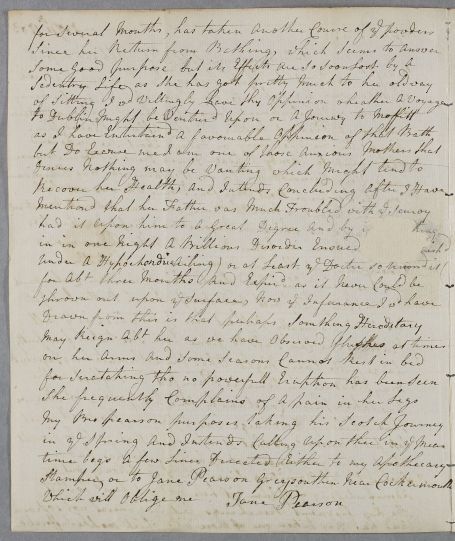 for Several Months, has taken another Course of yᵉ powders
Since her Return from Bathing, which Seems to Answer
Some Good purpose but its Effects are so Soon lost by a
Sedentary Life, as She has got pretty much to her old way
of Sitting, I wd Willingly have thy Oppinion wheather a Voyage
to Dublin might be Ventured upon or a Journey to Moffitt
as I have Entertaind a favourable Oppineon of that Bath
but Do Excuse me I am one of those Anxious Mothers that
Desires Nothing may be Wanting which Might tend to
Recover her Health, And Intends Concluding After I Have
Mentiond that her Father was Much Troubled with
had it upon him to a Great Degree And by
in in one Night A Billious Disorder Ensued
under A Hypochondria or at Least yᵉ Doctor so termd it
for Abt three Months And Expird as it Never Could be
thrown out upon yᵉ Surface, Now yᵉ Inferance I wd have
Drawn from this is that perhaps Somthing Hereditary
May Reign Abt her as we have Observd at times
on her Arms And Some Seasons Cannot Rest in bed
for Scratching tho no powerfull Eruption has been Seen
She frequently Complains of A pain in her Legs
My Bro pearson purposes taking his Scotch Journey
in yᵉ Spring And Intends Calling upon thee in yᵉ Mean
time begs A few Lines Directed Either to my Apothecary
or to Jane Pearson Greysouthen Near Cockermouth
Which will Oblige me Jane Pearson